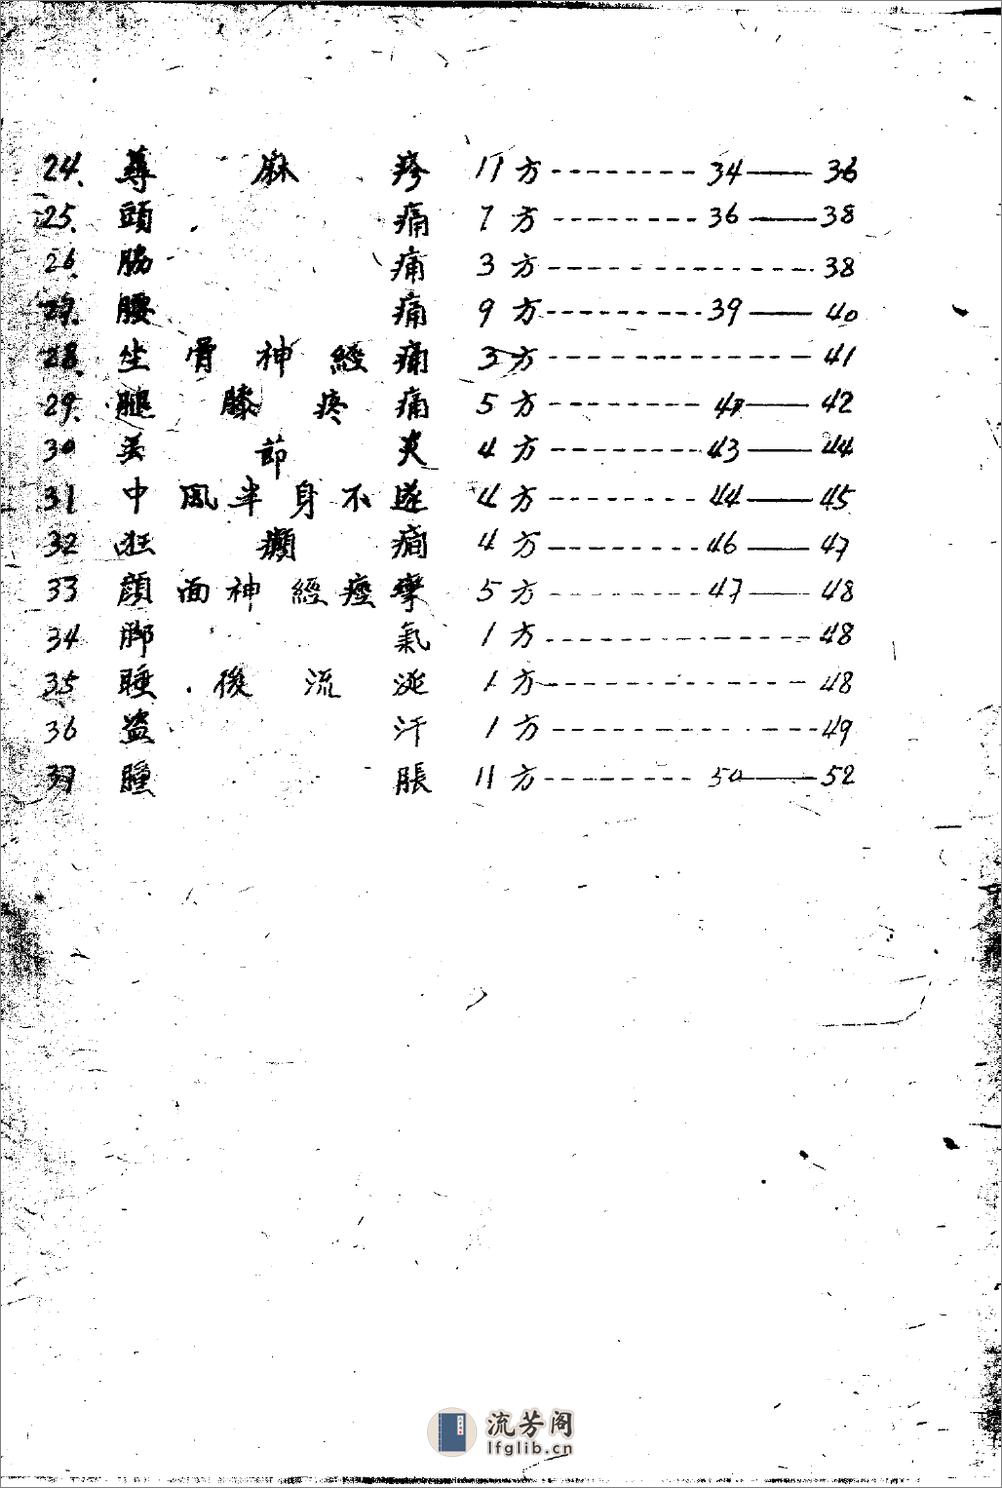 24. 蕁麻疹 11方--------34——36
25. 頭痛 7方--------36——38
26. 脇痛 3方--------------38
27. 腰痛 9方--------39——40
28. 坐骨神經痛 3方--------------41
29. 腿膝疼痛 5方--------41——42
30 关節炎 4方--------43——44
31 中風半身不遂 4方--------44——45
32 狂癲癇 4方--------46——47
33 顔面神經痙攣 5方--------47——48
34 脚氣 1方--------------48
35 睡後流涎 1方--------------48
36 盗汗 1方--------------49
37 腫脹 11方--------50——52
流芳阁
lfglib.cn